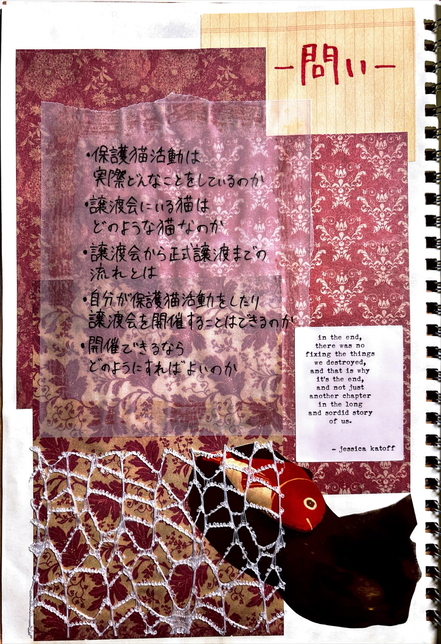 －問い－
・保護猫活動は
実際どんなことをしているのか
・譲渡会にいる猫は
どのような猫なのか
・譲渡会から正式譲渡までの
流れとは
・自分が保護猫活動をしたり
譲渡会を開催することはできるのか
・開催できるなら
どのようにすればよいのか
in the end,
there was no
fixing the things
we destroyed,
and that is why
it's the end,
and not just
another chapter
in the long
and sordid story
of us.
- jessica katoff